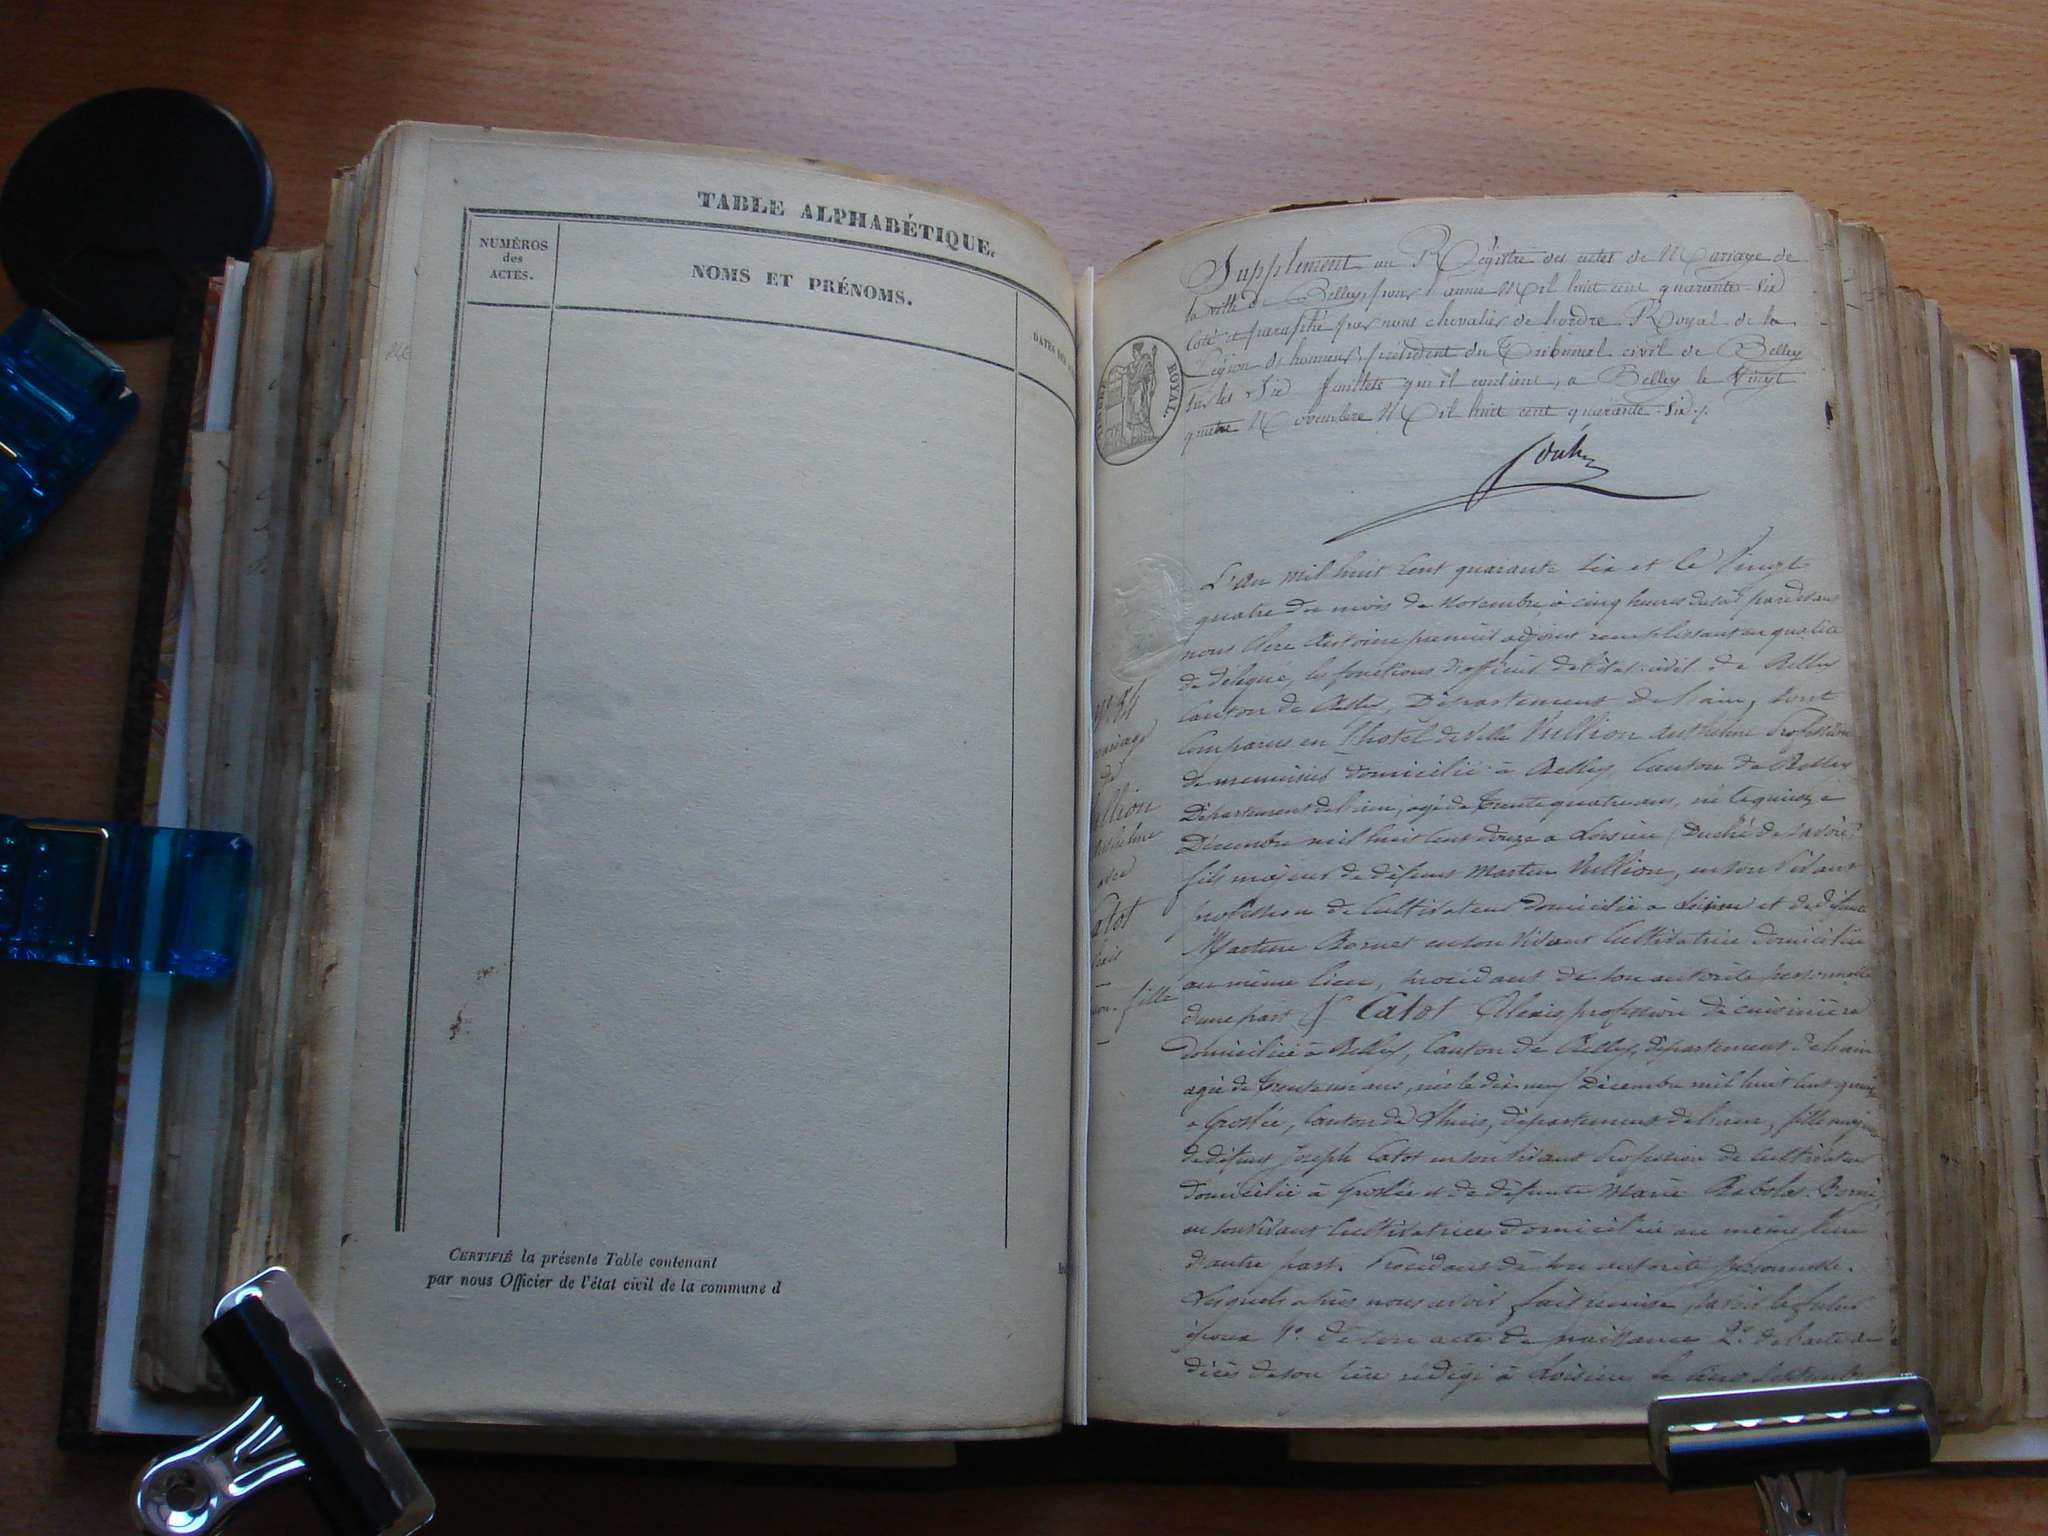 TABLE ALPHABÉTIQUE.
NUMÉROS
des
ACTES.
NOMS ET PRÉNOMS.
DATES DES
CERTIFIÉ la présente Table contenant
par nous Officier de l'état civil de la commune d
Supplément au Régistre des actes de Mariage de
la ville de Belley, pour l'année Mil huit cent quarante-Six
Coté et paraphé par nous chevalier de l'ordre Royal de la
Légion de honneur, président du Tribunal civil de Belley
sur les Six feuillets qu'il contient, a Belley le Vingt
quatre Novembre Mil huit cent quarante-Six.
ROYAL.
L'an mil huit Cent quarante Six et le Vingt
quatre du mois de Novembre à cinq heures du soir pardevant
nous Antoine premier adjoint remplissant en qualité
de délégué, les fonctions d'officier de l'état-civil de Belley
Canton de Belley, Département de l'ain, sont
Comparus en l'hotel de Ville Vullion Anthelme Profession
de menuisier domicilié à Belley, Canton de Belley
Département de l'ain, agé de trente quatre ans, né le quinze
Décembre mil huit cent douze a Loisieu (Duché de Savoie)
fils majeur de défunt Martin Vullion, en son Vivant
profession de Cultivateur domicilié a Loisieu et de défunte
Martine Bornet en son Vivant Cultivatrice domiciliée
au même lieu, procédant de son autorité personnelle
d'une part Et Catot Alexis profession de cuisinière
domiciliée à Belley, Canton de Belley, département de l'ain
agée de trente un ans, née le dix neuf Décembre mil huit cent quinze
a Groslée, Canton de Lhuis, département de l'ain, fille majeure
de défunt Joseph Catot en son Vivant Profession de Cultivateur
domicilié à Groslée et de défunte Marie
en son Vivant Cultivatrice domiciliée au même lieu
d'autre part. Procédant de son autorité personnelle.
Lesquels après nous avoir fait remise, savoir le futur
époux 1º. de son acte de naissance 2º. de l'acte de
décès de son père rédigé à Loisieu le cinq Septembre
Nº 54
mariage
de
Vullion
Anthelme
avec
Catot
Alexis
fille